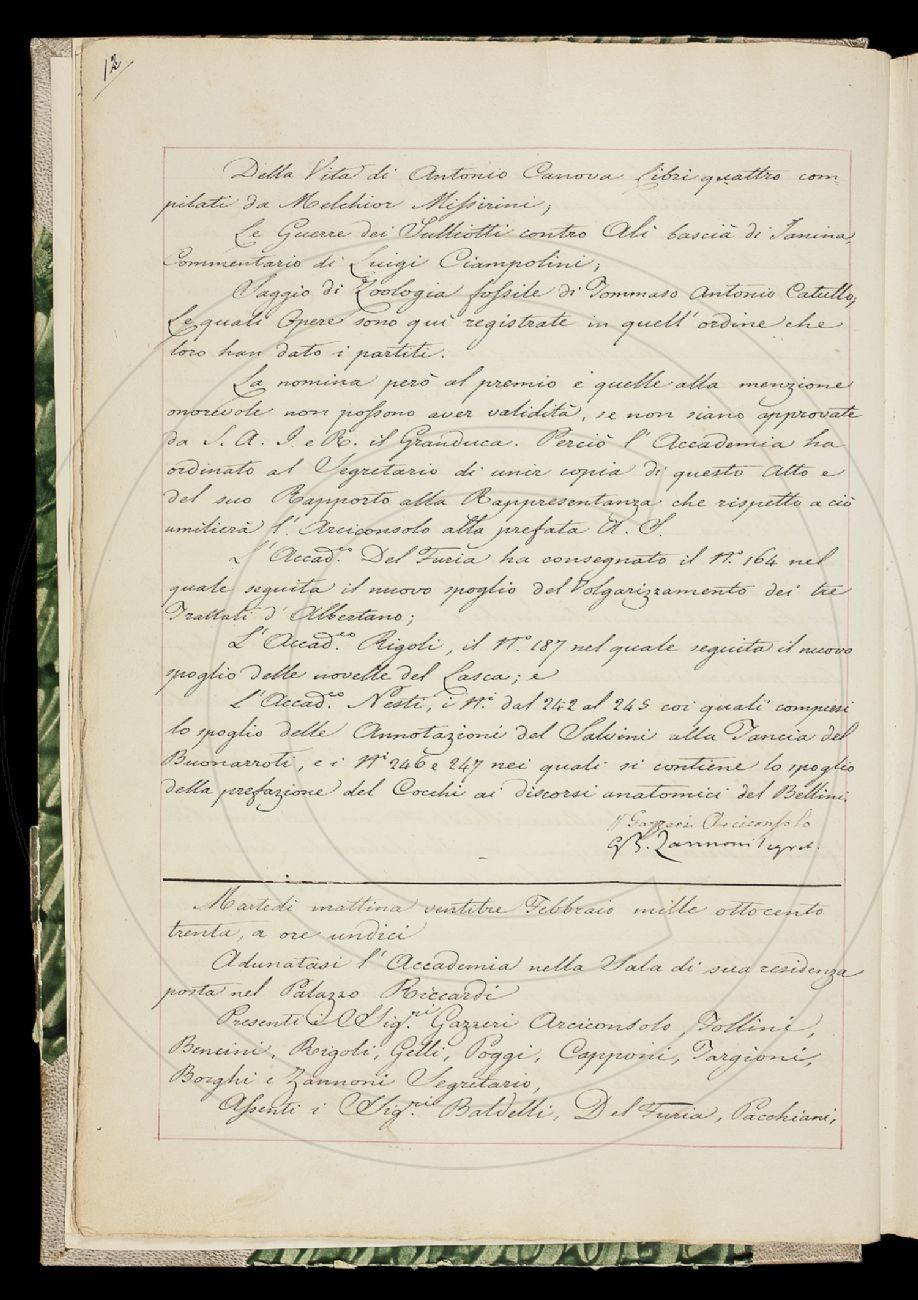 12
Della Vita di Antonio Canova Libri quattro com-
pilati da Melchior Missirini;
Le Guerre dei Sulliotti contro Alì bascià di Janina,
Commentario di Luigi Ciampolini;
Saggio di Zoologia fossile di Tommaso Antonio Catullo;
Le quali Opere sono qui registrate in quell'ordine che
loro han dato i partiti.
La nomina però al premio e quelle alla menzione
onorevole non possono aver validità, se non siano approvate
da S. A. I. e R. il Granduca. Perciò l'Accademia ha
ordinato al Segretario di unir copia di questo Atto e
del suo Rapporto alla Rappresentanza che rispetto a ciò
umilierà l'Arciconsolo alla prefata A. S.
L'Accad.co Del Furia ha consegnato il N.o 164 nel
quale seguita il nuovo spoglio del Volgarizzamento dei tre
Trattati d'Albertano;
L'Accad.co Rigoli, il N.o 187 nel quale seguita il nuovo
spoglio delle novelle del Lasca; e
L'Accad.co Nesti, i N.i dal 242 al 245 coi quali compiesi
lo spoglio delle Annotazioni del Salvini alla Tancia del
Buonarroti, e i N.i 246 e 247 nei quali si contiene lo spoglio
della prefazione del Cocchi ai discorsi anatomici del Bellini.
Gazzeri Arciconsolo
G. B. Zannoni Segret.
Martedì mattina ventitre Febbraio mille ottocento
trenta, a ore undici
Adunatasi l'Accademia nella Sala di sua residenza
posta nel Palazzo Riccardi
Presenti i Sig.ri Gazzeri Arciconsolo, Follini,
Bencini, Rigoli, Gelli, Poggi, Capponi, Targioni,
Borghi e Zannoni Segretario,
Assenti i Sig.ri Baldelli, Del Furia, Pacchiani,